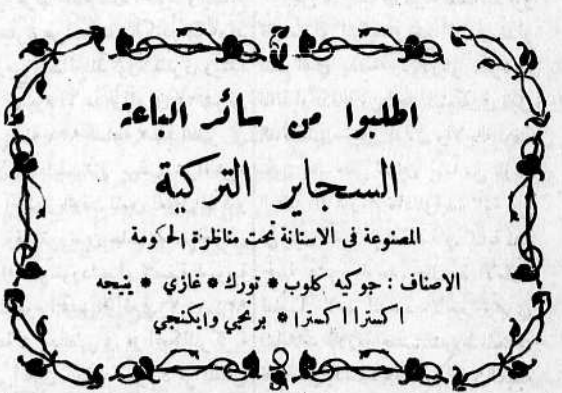 اطلبوا من سائر الباعة
السحاير التركية
المصنوعة في الاستانة تحت مناظرة الحكومة
الاصناف : جوكيه كلوب * تورك * غازي * ينيجه
اكسترا اكسترا * برنجي وايكنجي